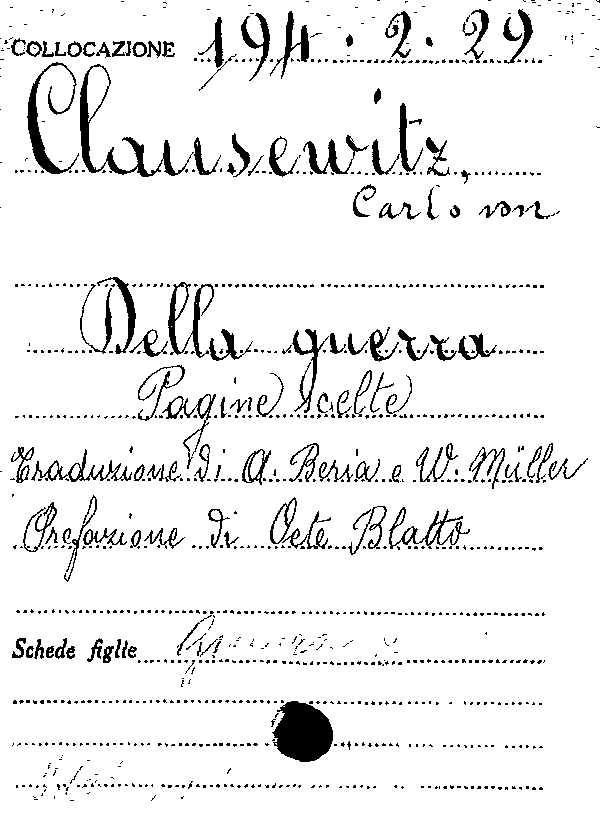 COLLOCAZIONE 194.2.29
Clausewitz,
Carlo von
Della guerra
Pagine scelte
Traduzione di A. Beria e W. Müller
Prefazione di Oete Blatto
Schede figlie